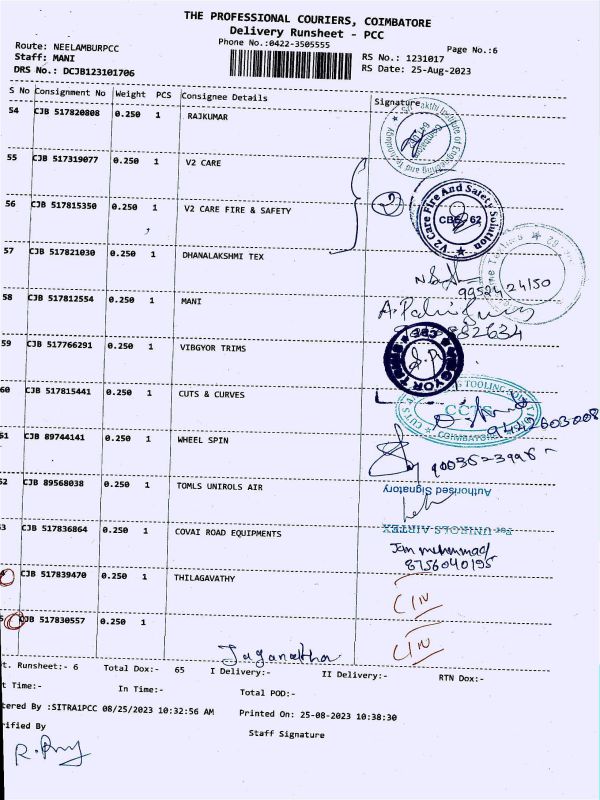 THE PROFESSIONAL COURIERS, COIMBATORE
Delivery Runsheet - PCC
Phone No.:0422-3505555
Page No.:6
Route: NEELAMBURPCC
Staff: MANI
DRS No.: DCJB123101706
RS No.: 1231017
RS Date: 25-Aug-2023
S No Consignment No Weight PCS Consignee Details Signature
54 CJB 517820808 0.250 1 RAJKUMAR
55 CJB 517319077 0.250 1 V2 CARE
56 CJB 517815350 0.250 1 V2 CARE FIRE & SAFETY
2
V2 Care Fire And Safety Solution
CBE 62
57 CJB 517821030 0.250 1 DHANALAKSHMI TEX
9952424150
58 CJB 517812554 1 MANI
59 CJB 517766291 1 VIBGYOR TRIMS
VIBGYOR TRIMS
CBE
60 CJB 517815441 0.250 1 CUTS & CURVES
CCTS
COIMBATORE
9442603008
61 CJB 89744141 0.250 1 WHEEL SPIN
52 CJB 89568038 0.250 1 TOMLS UNIROLS AIR
Authorised Signatory
For UNIROLS AIRTEX
53 CJB 517836864 0.250 1 COVAI ROAD EQUIPMENTS
8756040195
CJB 517839470 0.250 1 THILAGAVATHY
CJB 517830557 0.250 1
Jaganatha
t. Runsheet:- 6 Total Dox:- 65 I Delivery:- II Delivery:- RTN Dox:-
t Time:- In Time:- Total POD:-
tered By :SITRA1PCC 08/25/2023 10:32:56 AM Printed On: 25-08-2023 10:38:30
rified By Staff Signature